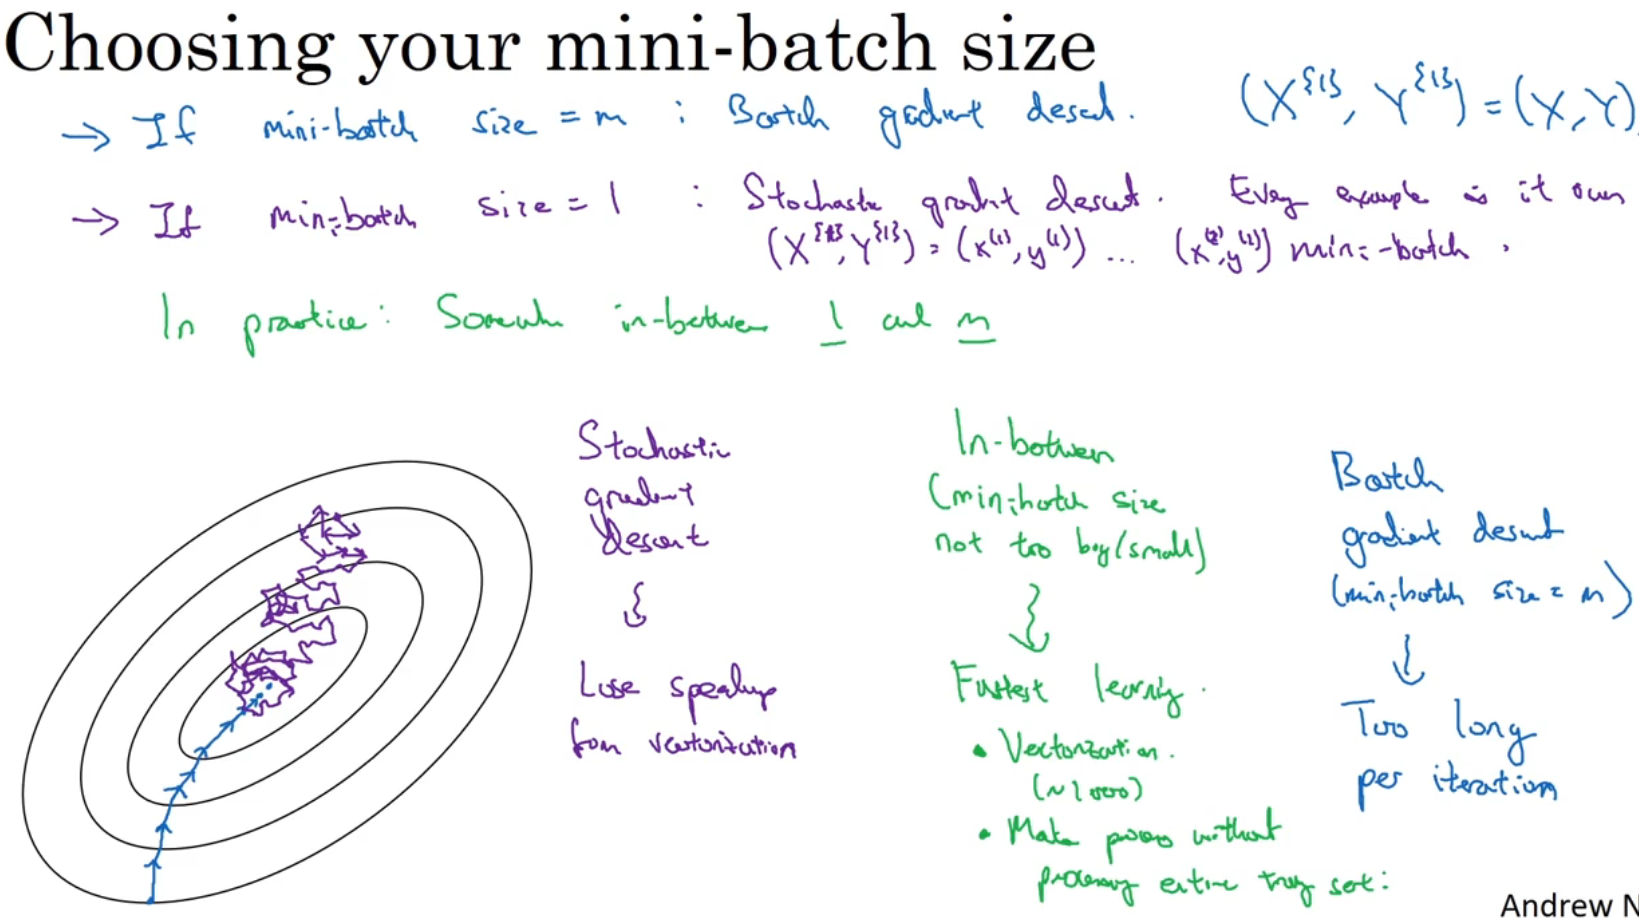 Choosing your mini-batch size
→ If mini-batch size = m : Batch gradient descent. (X^{1}, Y^{1}) = (X, Y)
→ If mini-batch size = 1 : Stochastic gradient descent. Every example is it own
(X^{1}, Y^{1}) = (x^(1), y^(1)) ... (x^(2), y^(2)) mini-batch.
In practice: Somewhere in-between 1 and m
Stochastic
gradient
descent
Lose speedup
from vectorization
In-between
(mini-batch size
not too big/small)
Fastest learning.
• Vectorization.
(~1000)
• Make progress without
processing entire training set.
Batch
gradient descent
(mini-batch size = m)
Too long
per iteration
Andrew N